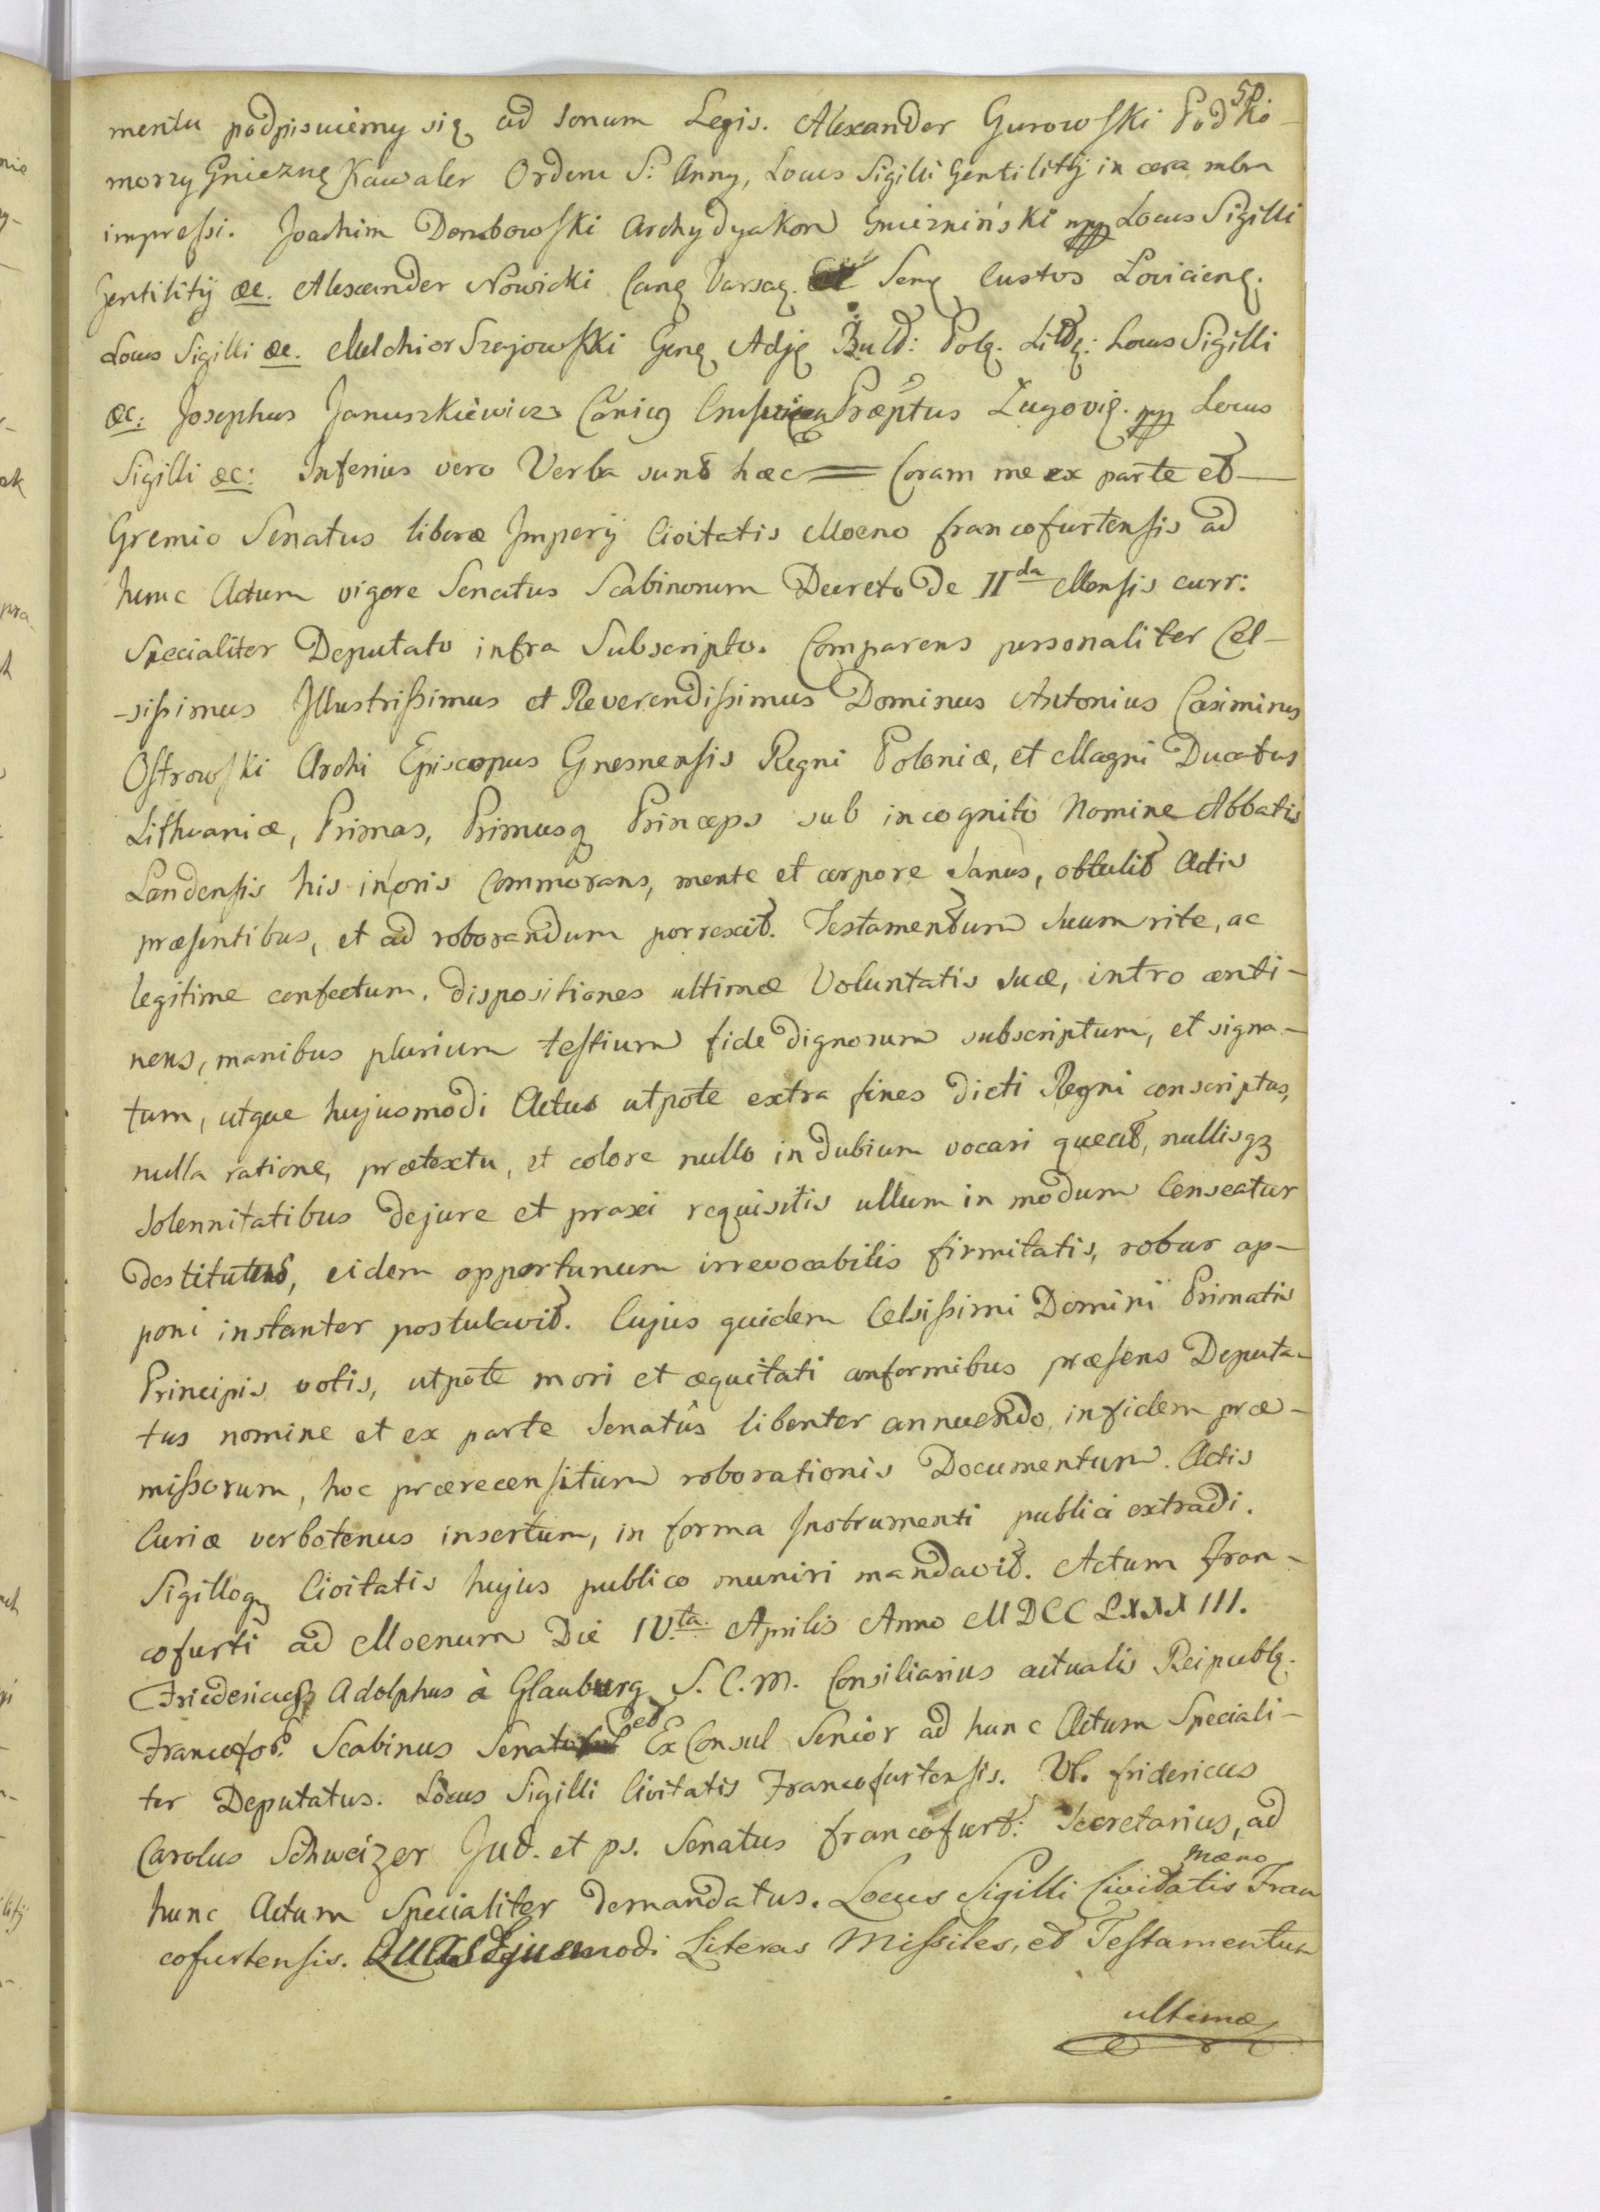 50
mentu podpisuiemy się ad sonum Legis. Alexander Gurowski Podko-
morzy Gnieznę Kawaler Orderu S: Anny, Locus Sigilli Gentilitij in cera rubra
impressi. Joachim Dembowski Archydyakon Gniezniński mpp Locus Sigilli
Gentilitij &c. Alexander Nowicki Canę Varsaę. Senę Custos Loviciens.
Locus Sigilli &c. Melchior Szajowski Genę Adję Buld: Polę. Litę: Locus Sigilli
&c: Josephus Januszkiewicz Cănicq Præptus Zugovię. mpp Locus
Sigilli &c: Inferius vero Verba sunt hæc = Coram me ex parte et
Gremio Senatus liberæ Imperij Civitatis Moeno francofurtensis ad
hunc Actum vigore Senatus Scabinorum Decreto De II da Mensis curr:
Specialiter Deputato infra Subscripto. Comparens personaliter Cel-
-sissimus Illustrissimus et Reverendissimus Dominus Antonius Casimirus
Ostrowski Archi Episcopus Gnesnensis Regni Poloniæ, et Magni Ducatus
Lithvaniæ, Primas, Primusq Princeps sub incognito Nomine Abbatis
Landensis his in oris Commorans, mente et corpore sanus, obtulit Actis
præsentibus, et ad roborandum porrexit. Testamentum suum rite, ac
legitime confectum. dispositiones ultimæ Voluntatis suæ, intro conti-
nens, manibus plurium testium fide Dignorum subscriptum, et signa-
tum, utque hujusmodi Actus utpote extra fines Dicti Regni conscriptus,
nulla ratione, prætextu, et colore nullo in dubium vocari queat, nullisq3
Solennitatibus Dejure et praxi requisitis ullum in modum Censeatur
destitutus, eidem opportunum irrevocabilis firmitatis, robur ap-
poni instanter postulavit. Cujus quidem Celsissimi Domini Primatis
Principis votis, utpote mori et æquitati conformibus præsens Deputa-
tus nomine et ex parte Senatûs libenter annuendo, in fidem præ-
missorum, hoc prærecensitum roborationis Documentum. Actis
Curiæ verbotenus insertum, in forma Instrumenti publici extradi.
Sigilloq Civitatis hujus publico muniri mandavit. Actum Fran-
cofurti ad Moenum Die IV.ta. Aprilis Anno MDCCLXXXIII.
Fridericus Adolphus à Glauburg S. C. M. Consiliarius actualis Reipublę.
Francofor: Scabinus Senator et Ex Consul Senior ad hunc Actum Speciali-
ter Deputatus. Locus Sigilli Civitatis Francofurtensis. Vt. fridericus
Carolus Schweizer Jud. et ps. Senatus francofurt: Secretarius, ad
hunc Actum Specialiter demandatus. Locus Sigilli Civitatis Mæno Fran
cofurtensis. Quas Ejusmodi Literas Missiles, et Testamentum
ultimæ